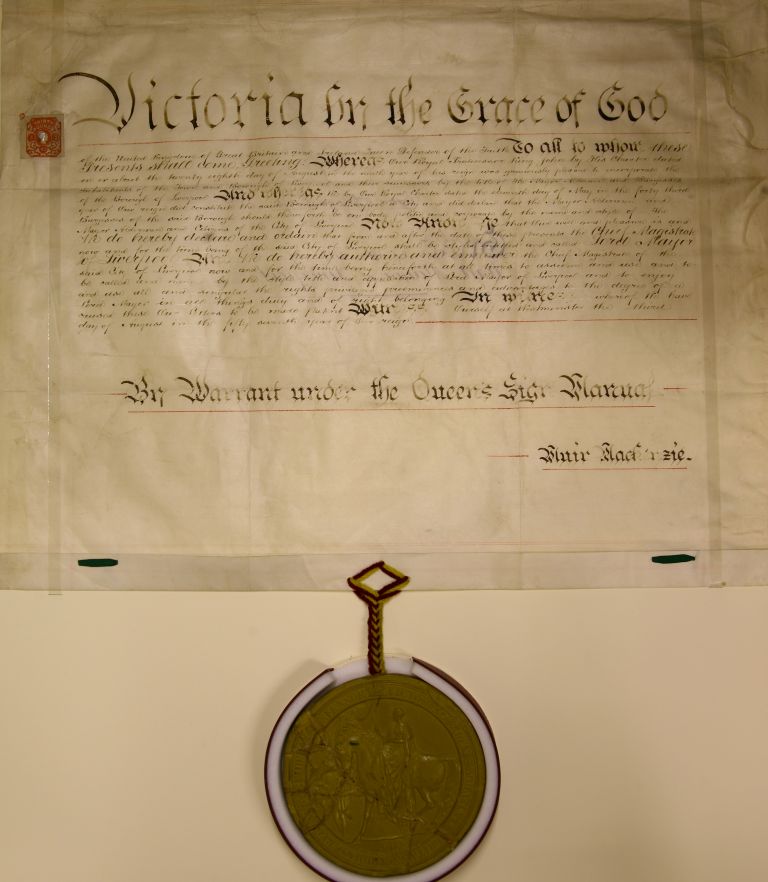 Victoria by the Grace of God
of the United Kingdom of Great Britain and Ireland Queen Defender of the Faith To all to whom these
Presents shall come Greeting Whereas Our Royal Predecessor King John by His Charter dated
on or about the twenty eighth day of August in the ninth year of his reign was graciously pleased to
Inhabitants of the Town and Borough of
of the Borough of Liverpool And whereas We by Our Royal Charter dated the eleventh day of May in the forty third
year of Our reign did constitute the said Borough of Liverpool a City and did declare that the Mayor Aldermen and
Burgesses of the said Borough should thenceforth be one body politic and corporate by the name and style of the
Mayor Aldermen and Citizens of the City of Liverpool Now Know Ye that
We do hereby declare and ordain that from and after the date of these presents the Chief Magistrate
now and for the time being of the said City of Liverpool shall be styled entitled and called Lord Mayor
of Liverpool And We do hereby authorize and empower the Chief Magistrate of the
said City of Liverpool now and for the time being henceforth at all times to assume and use and to
be called and named by the style title and appellation of Lord Mayor of Liverpool and to enjoy
and use all and singular the rights privileges preeminences and advantages to the degree of a
Lord Mayor in all things duly and of right belonging In witness whereof We have
caused these Our Letters to be made Patent Witness Ourself at Westminster the third
day of August in the fifty seventh year of Our reign
By Warrant under the Queen's Sign Manual
Muir Mackenzie